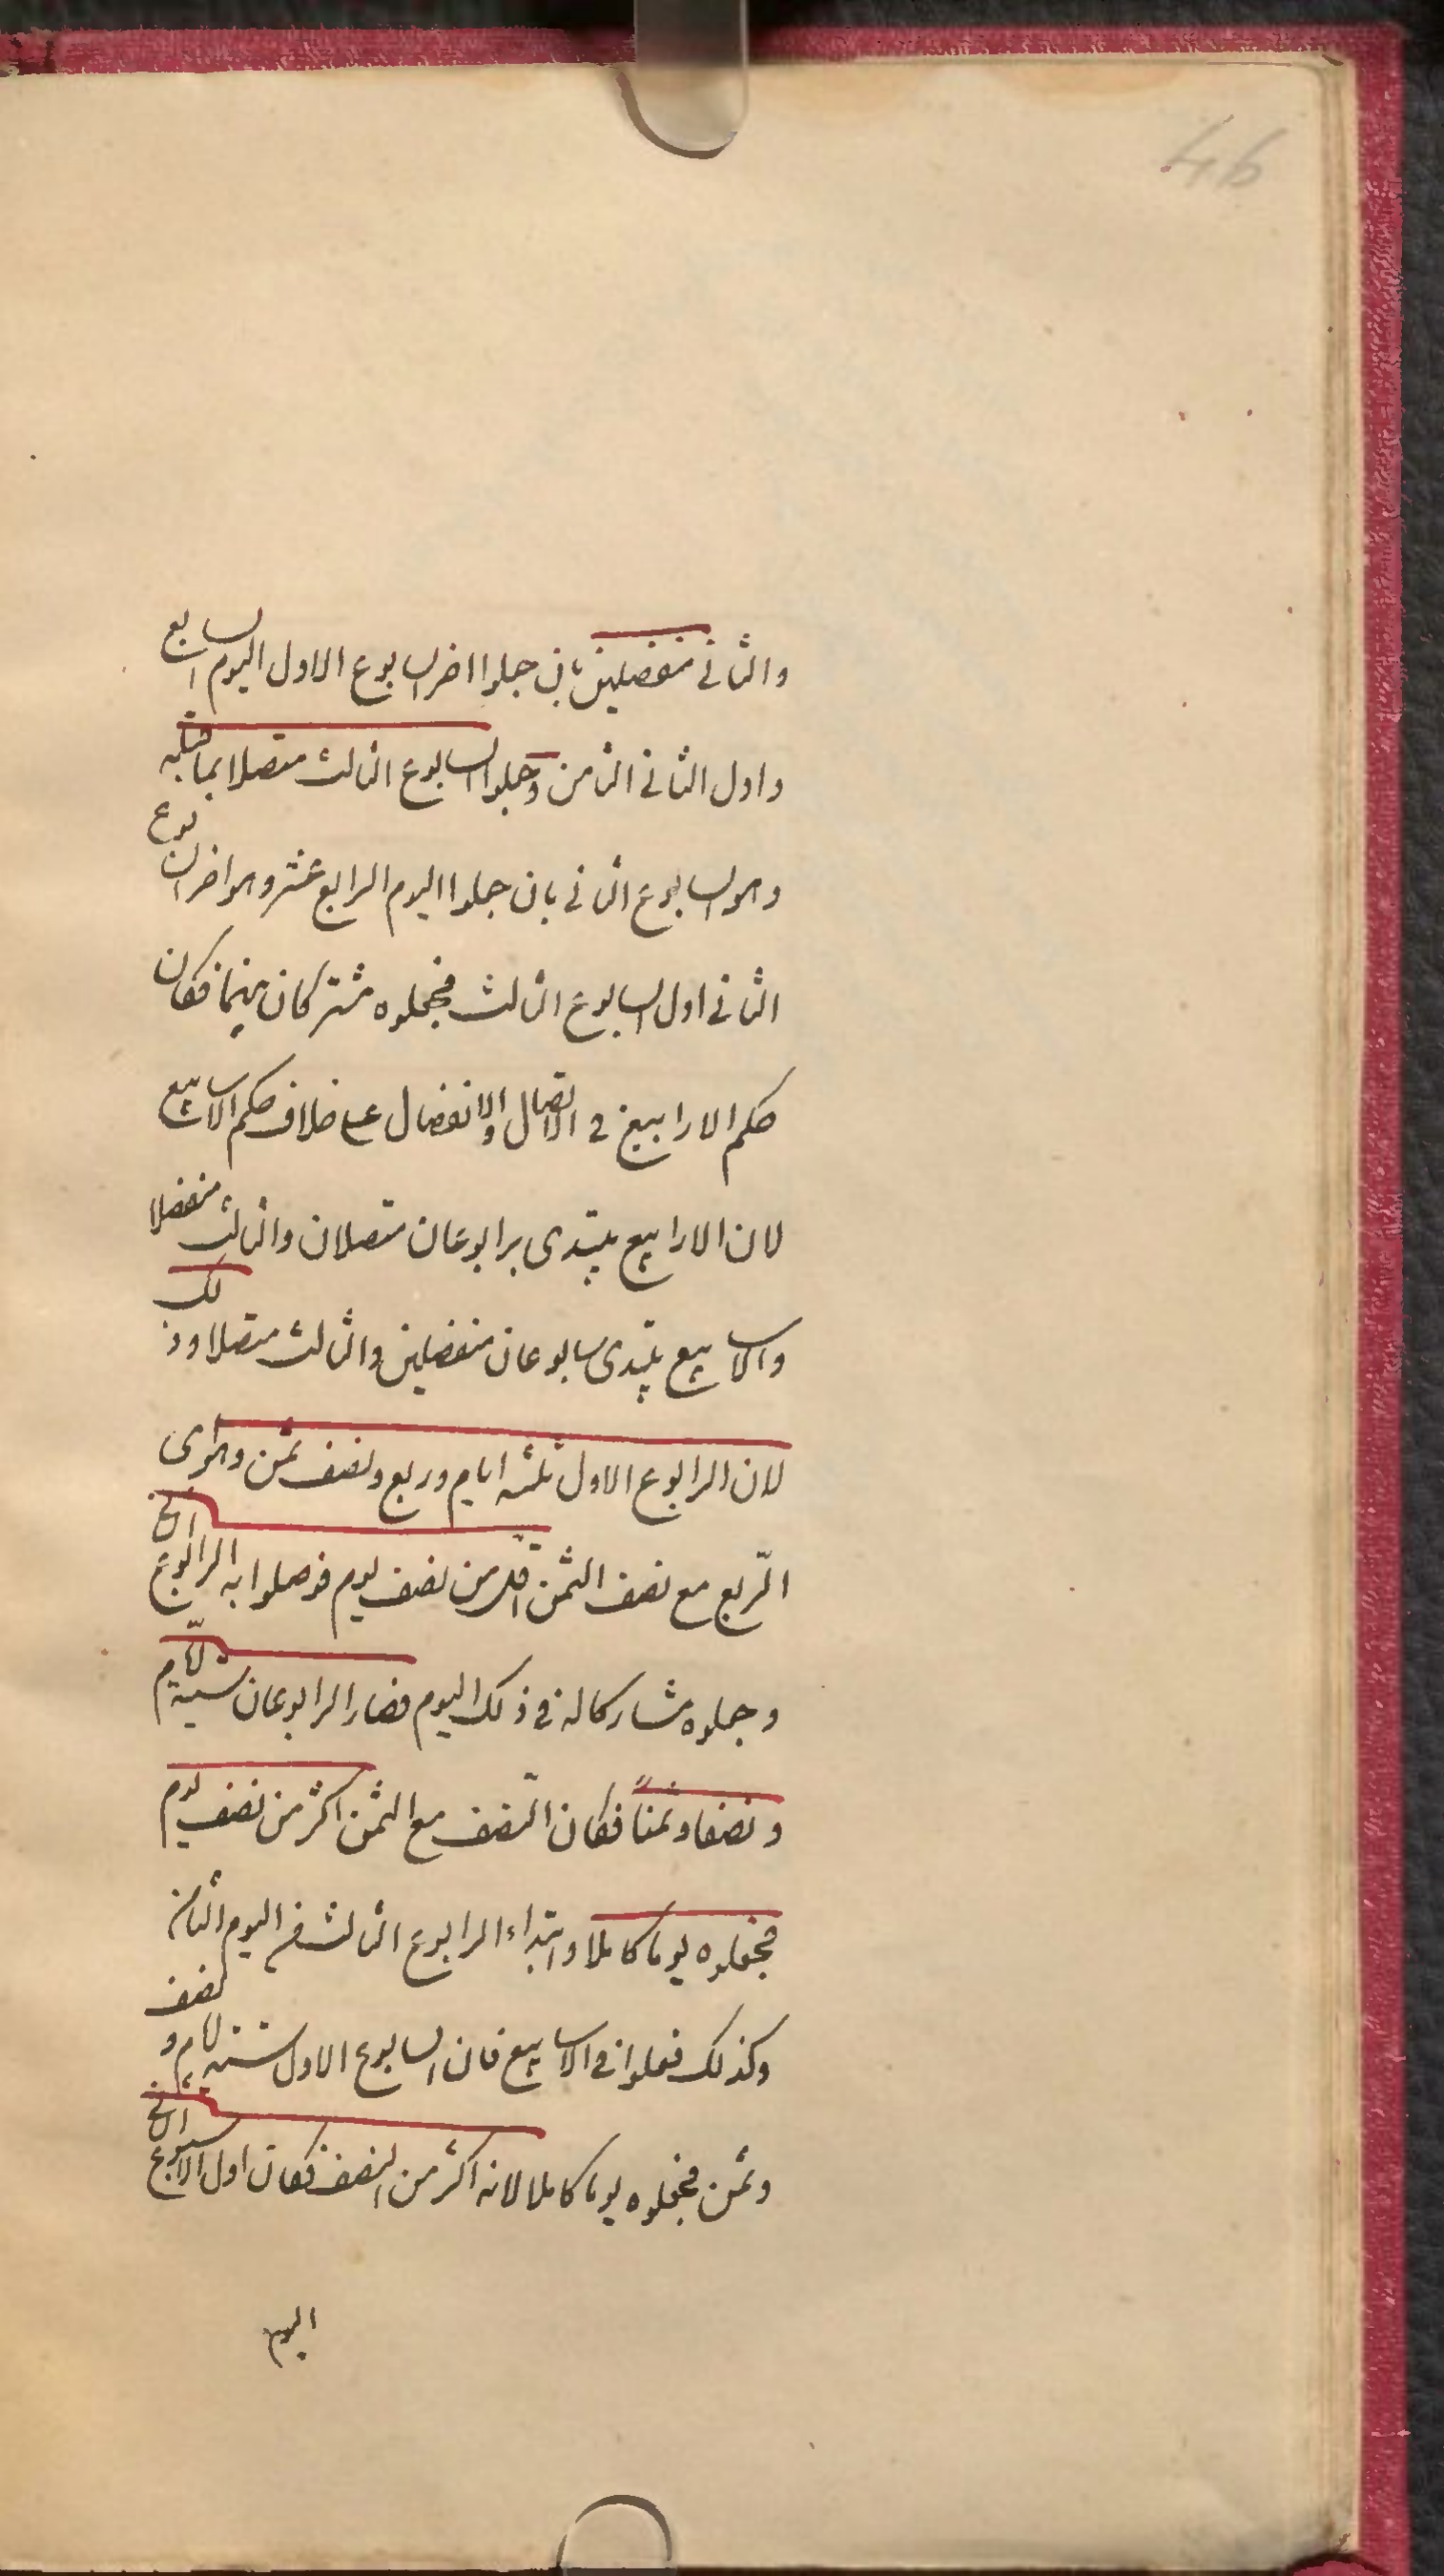 46
والثانى منفصلين بان جعلوا اخر السابوع الاول اليوم السابع
واول الثانى الثامن وجعلوا السابوع الثالث متصلا بما قبله
وهو السابوع الثانى بان جعلوا اليوم الرابع عشر وهو اخر السابوع
الثانى اول السابوع الثالث فجعلوه مشتركان بينهما فكان
حكم الارابيع فى الاتصال والانفصال على خلاف حكم الاسابيع
لان الارابيع يبتدى برابوعان متصلان والثالث منفصلا
والاسابيع يبتدى سابوعان منفصلين والثالث متصلا وذلك
لان الرابوع الاول ثلثه ايام وربع ونصف ثمن وهو اى
الرّبع مع نصف الثمن اقل من نصف يوم فوصلوا به الرابوع الخ
وجعلوه مشاركا له فى ذلك اليوم فصار الرابوعان ستة ايام
ونصفا وثمناً فكان النّصف مع الثمن اكثر من نصف يوم
فجعلوه يوما كاملا وابتداء الرابوع الثالث فى اليوم الثامن
وكذلك فعلوا فى الاسابيع فان السابوع الاول ستة ايام ونصف
وثمن فجعلوه يوما كاملا لانه اكثر من النصف فكان اول الاسبوع الخ
اليوم